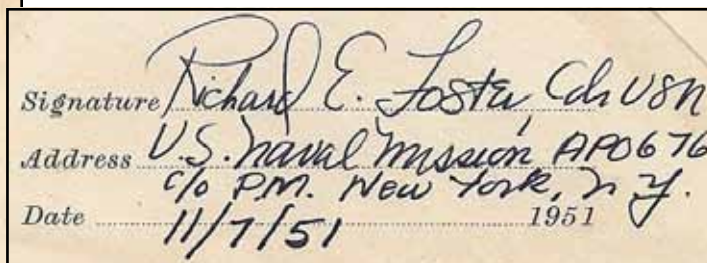 Signature Richard E. Foster, Cdr USN
Address U.S. Naval Mission APO 676
c/o P.M. New York, N.Y.
Date 11/7/51 1951